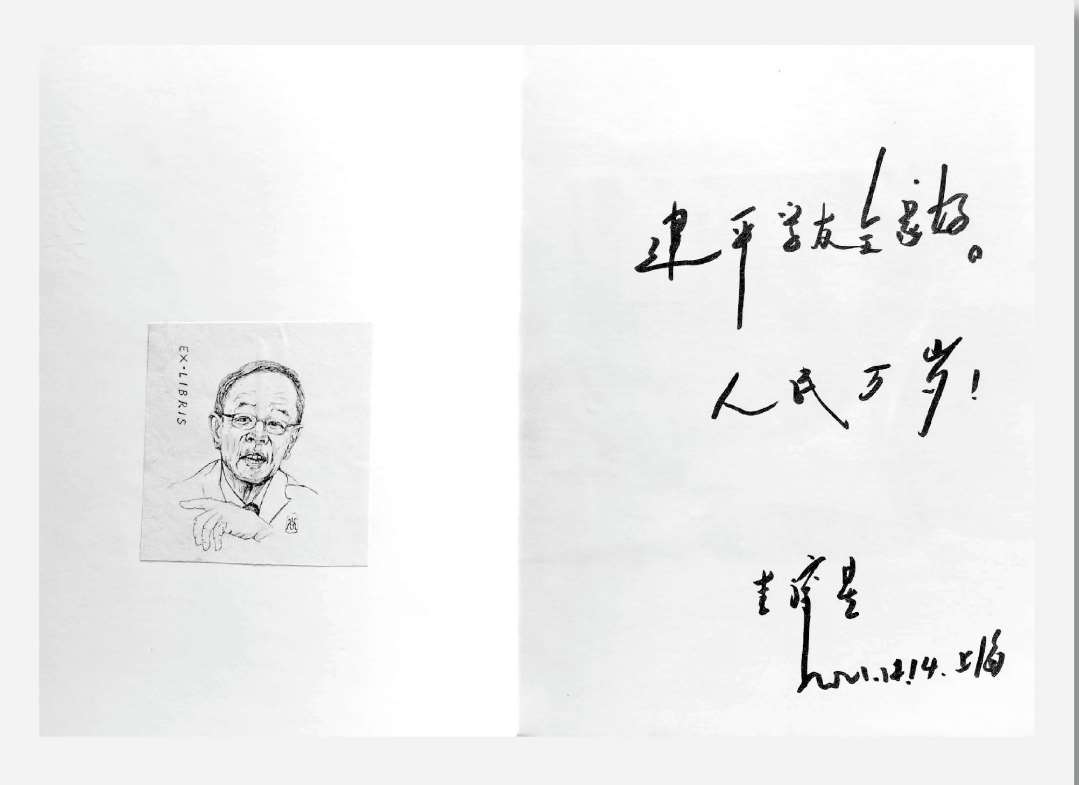 EX·LIBRIS
建平学友全家好。
人民万岁!
2021.12.14.上海